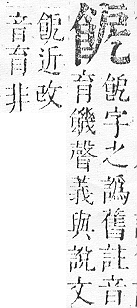 字之譌舊註音
育幾聲義與說文
近改
音育非